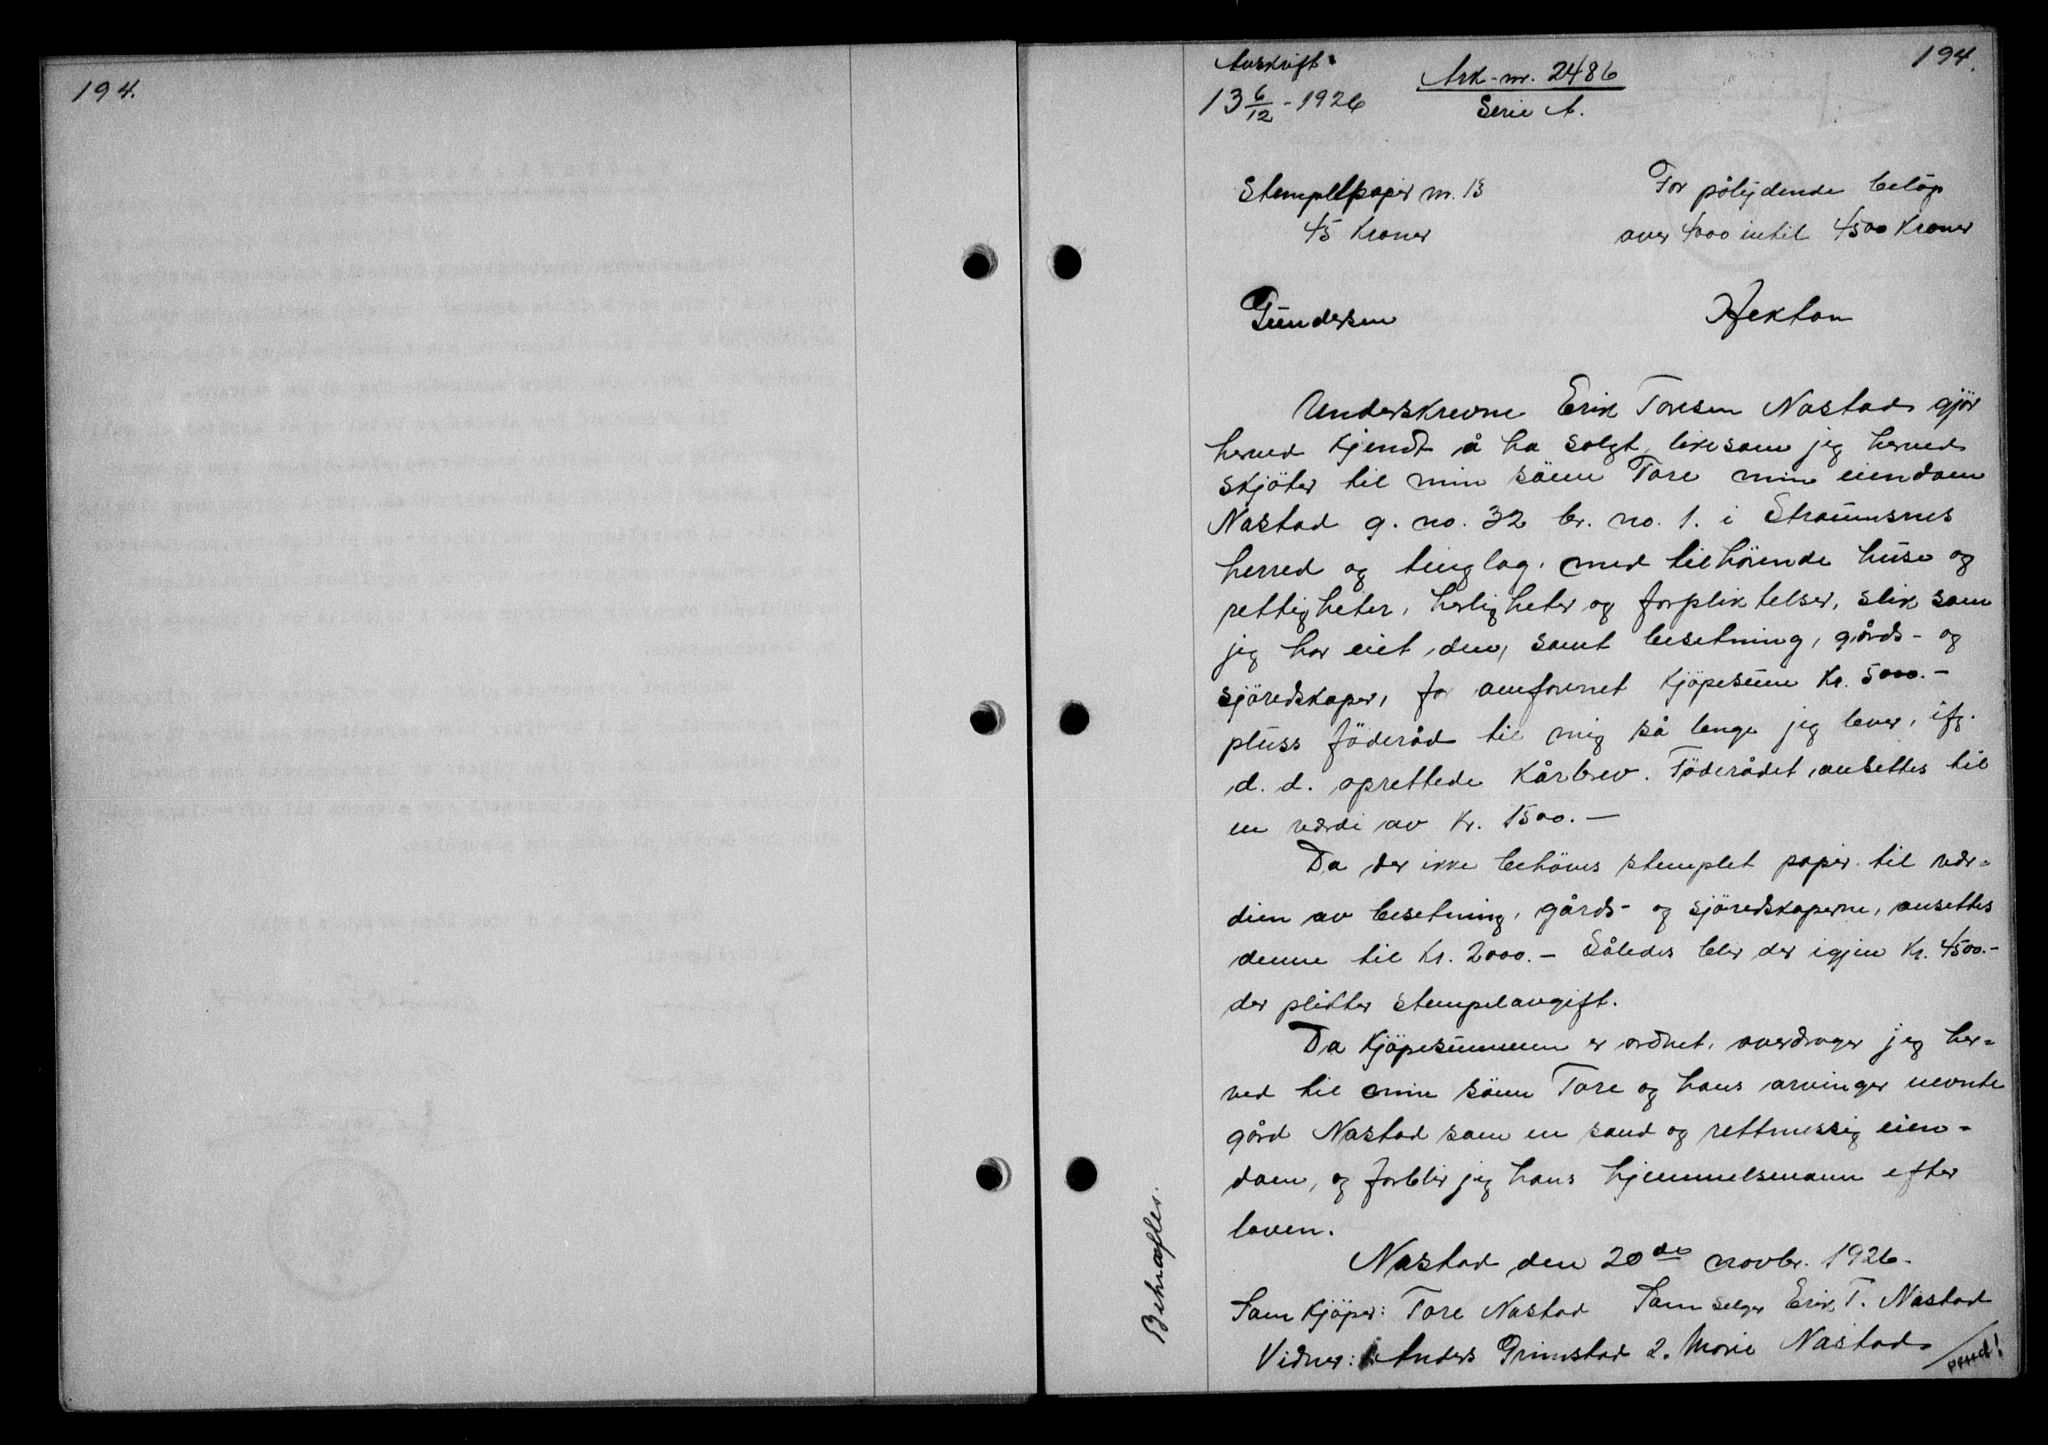 194.
194.
Avskrift.
13 6/12 - 1926
Ark-nr. 2486
Serie A.
Stempelpapir nr. 13
45 Kroner
For pålydende beløp
over 4000 intil 4500 Kroner
Gundersen
Hektoen
Underskrevne Erik Toresen Nastad gjör
herved kjendt å ha solgt, likesom jeg herved
skjöter til min sönn Tore min eiendom
Nastad g. no. 32 br. no. 1. i Straumsnes
herred og tinglag, med tilhörende huse og
rettigheter, herligheter og forpliktelser, slik som
jeg har eiet den, samt besetning, gårds- og
sjöredskaper, for omforenet kjöpesum Kr. 5000.-
pluss föderåd til mig så lenge jeg lever, ifg.
d. d. oprettede Kårbrev. Föderådet ansettes til
en værdi av Kr. 1500.-
Da der ikke behöves stemplet papir til vær-
dien av besetning, gårds- og sjöredskaperne, ansettes
denne til Kr. 2000.- Således blir der igjen Kr. 4500.-
der plikter stempelavgift.
Da kjöpesummen er ordnet, overdrager jeg her-
ved til min sönn Tore og hans arvinger nevnte
gård Nastad som en sand og rettmessig eien-
dom, og forblir jeg hans hjemmelsmann efter
loven.
Nastad den 20de novbr. 1926.
Som kjöper: Tore Nastad Som selger Erik T. Nastad
Vidner: 1. Anders Grimstad 2. Marie Nastad
vend!